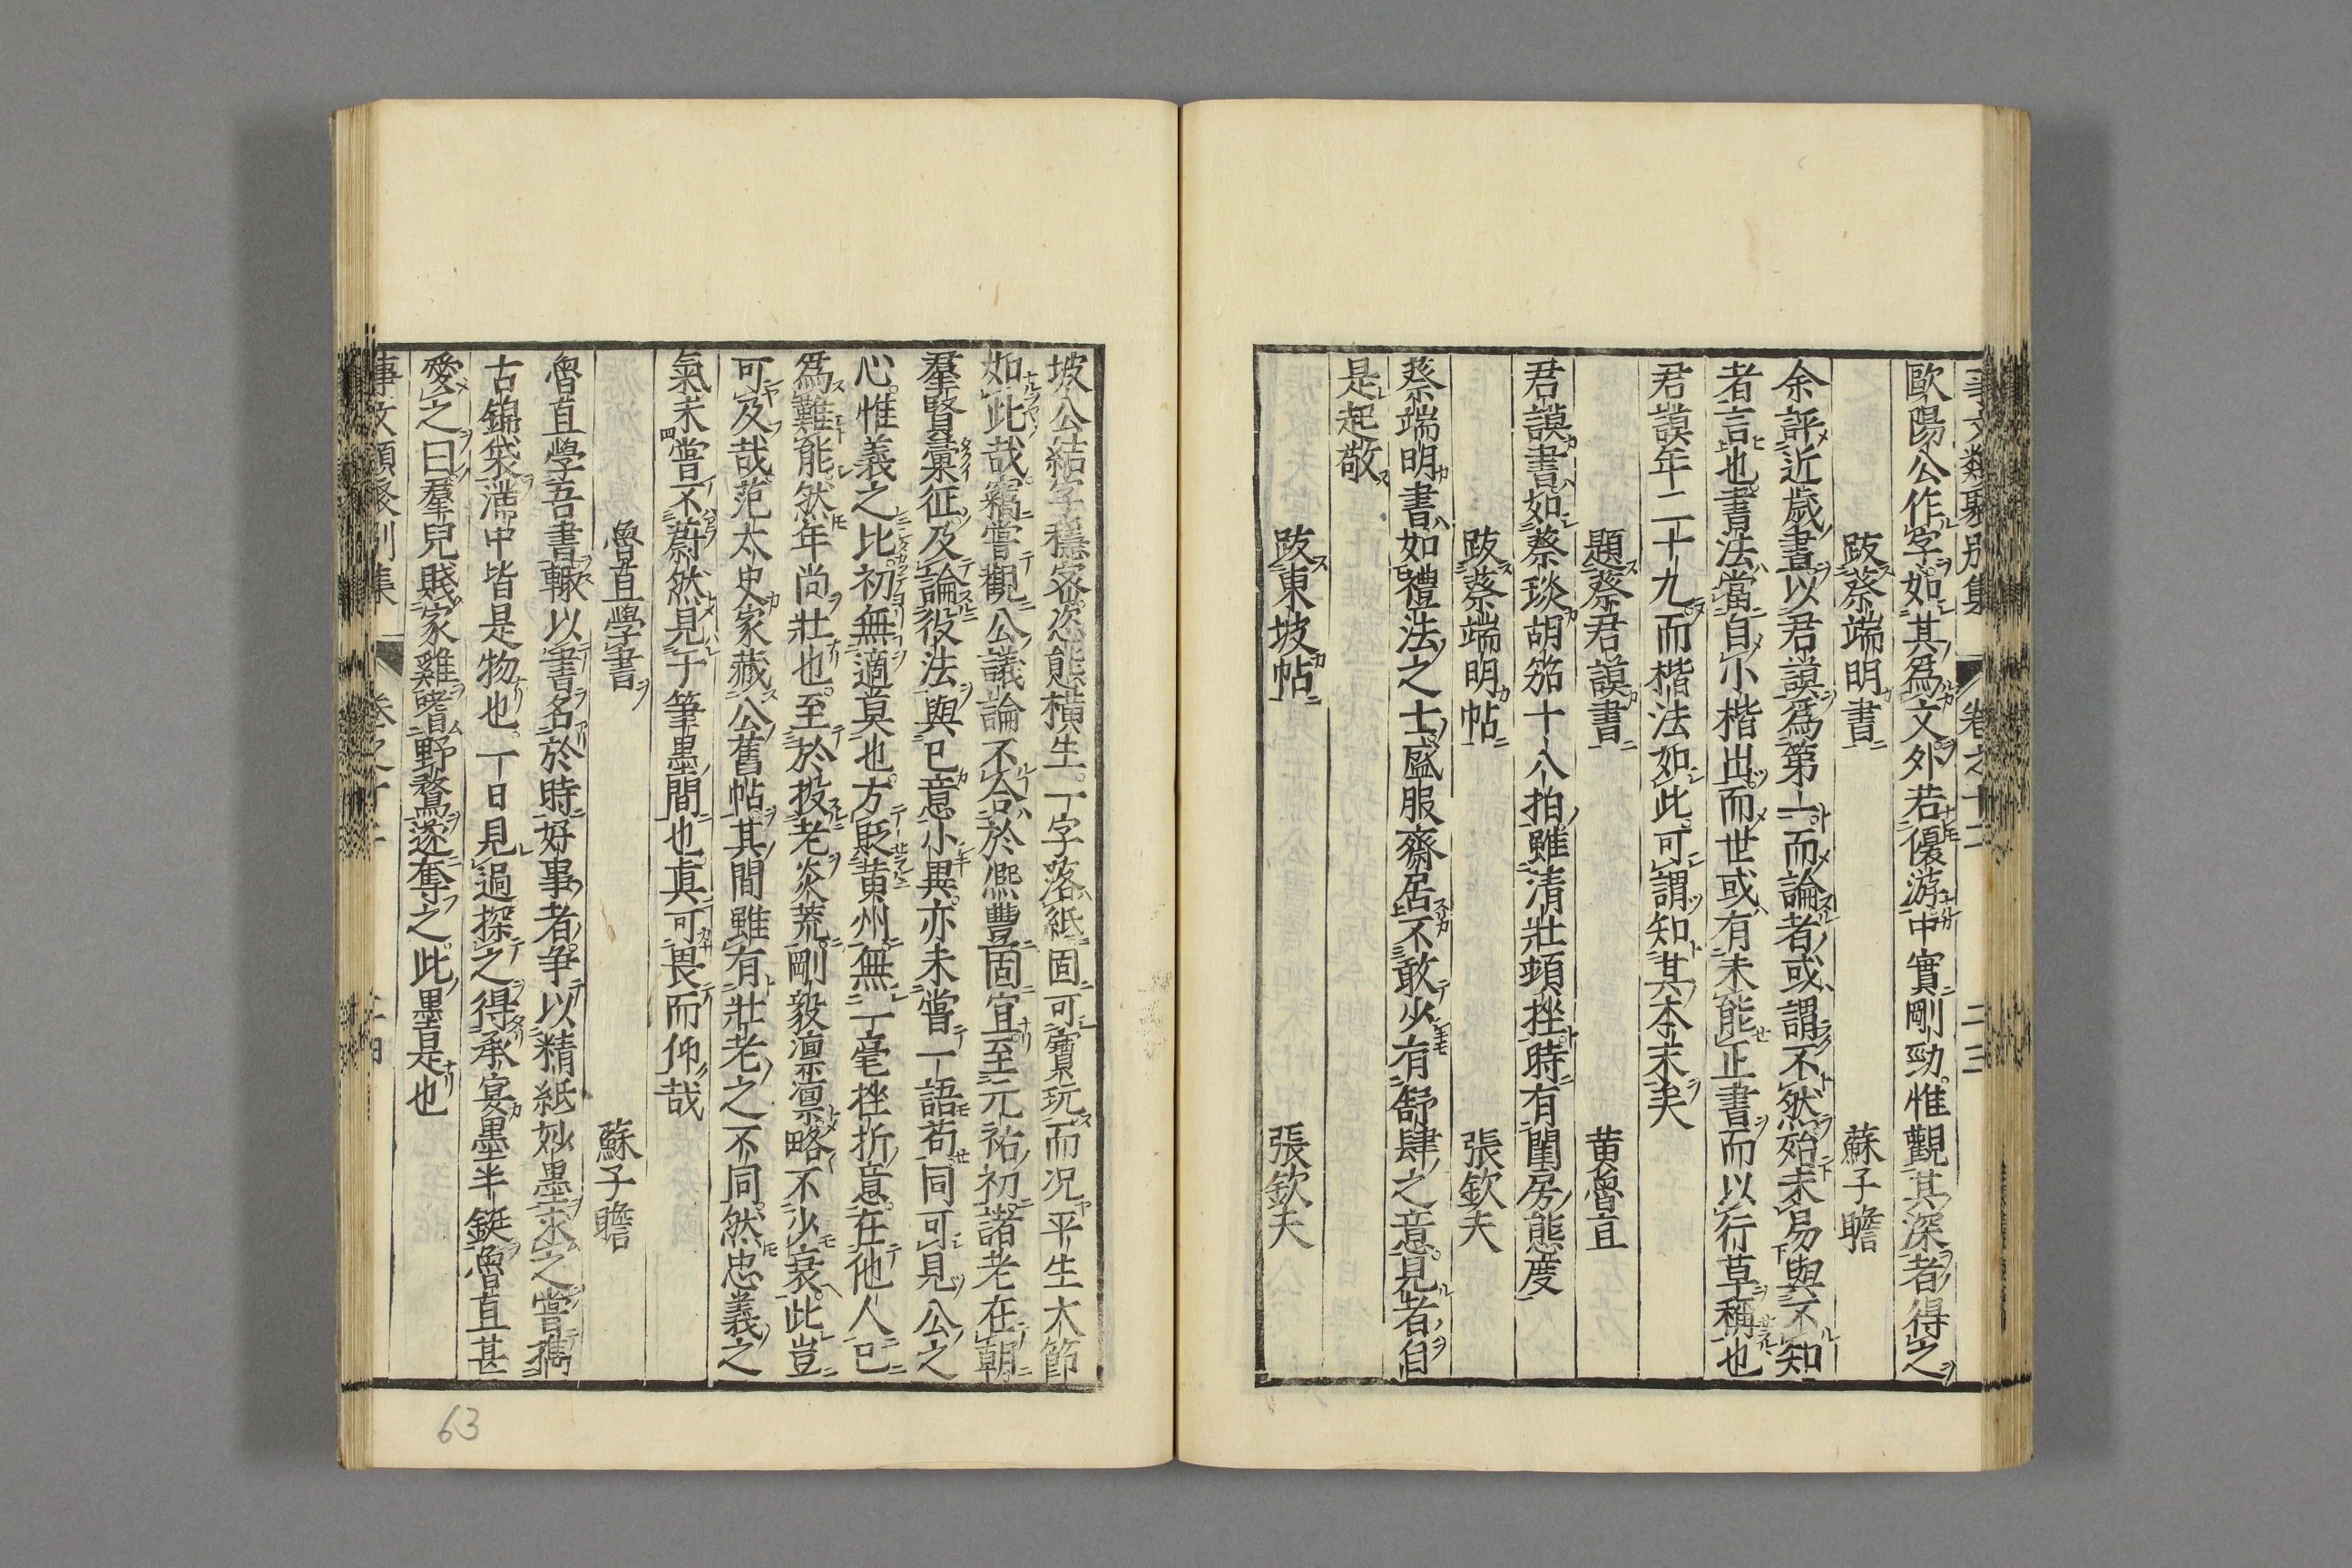 事文類聚別集 卷之十二 二三
歐陽公作字如其爲文外若優游中實剛勁惟觀其深者得之
跋蔡端明書 蘇子瞻
余評近歲書以君謨爲第一而論者或謂不然殆未易與不知
者言也書法當自小楷出而世或有未能正書而以行草稱也
君謨年二十九而楷法如此可謂知其本末矣
題蔡君謨書 黄魯直
君謨書如蔡琰胡笳十八拍雖清壯頓挫時有閨房態度
跋蔡端明帖 張欽夫
蔡端明書如禮法之士盛服齋居不敢少有舒肆之意見者自
是起敬
跋東坡帖 張欽夫
坡公結字穩密恣態横生一字落紙固可寶玩而况平生大節
如此哉竊嘗觀公議論不合於熈豐固宜至元祐初諸老在朝
羣賢彙征及論役法與已意小異亦未嘗一語苟同可見公之
心惟義之比初無適莫也方貶黄州無一毫挫折意在他人已
爲難能然年尚壯也至於投老炎荒剛毅凛凛略不少衰此豈
可及哉范太史家藏公舊帖其間雖有壯老之不同然忠義之
氣未嘗不蔚然見于筆墨間也真可畏而仰哉
魯直學書 蘇子瞻
魯直學吾書輙以書名於時好事者爭以精紙妙墨求之嘗擕
古錦袋滿中皆是物也一日見過探之得承宴墨半鋌魯直甚
愛之曰羣兒賤家雞嗜野鶩遂奪之此墨是也
事文類聚別集 卷之十二
63